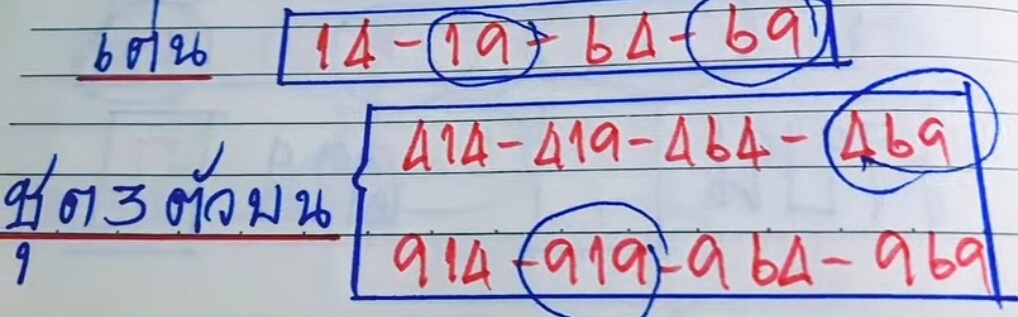 เด่น 14-19-64-69
414-419-464-469
ชุด 3 ตัวบน
914-919-964-969